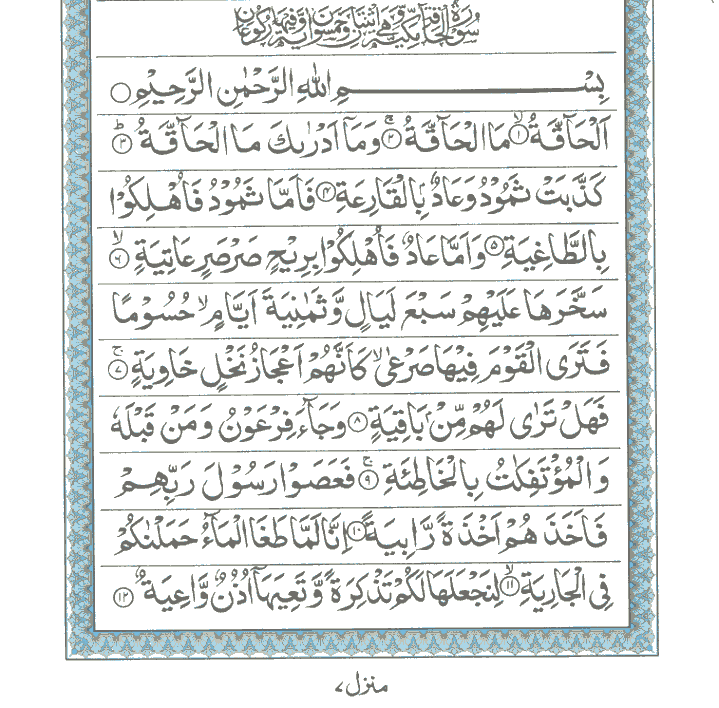 سُوْرَةُ الْحَاقَّةِ مَكِّيَّةٌ وَّهِيَ اثْنَتَانِ وَخَمْسُوْنَ اٰيَةً وَّفِيْهَا رُكُوْعَانِ
بِسْمِ اللّٰهِ الرَّحْمٰنِ الرَّحِيْمِ ○
اَلْحَآقَّةُ ۙ۱ مَا الْحَآقَّةُ ۚ۲ وَمَآ اَدْرٰىكَ مَا الْحَآقَّةُ ؕ۳
كَذَّبَتْ ثَمُوْدُ وَعَادٌۢ بِالْقَارِعَةِ ۴ فَاَمَّا ثَمُوْدُ فَاُهْلِكُوْا
بِالطَّاغِيَةِ ۵ وَاَمَّا عَادٌ فَاُهْلِكُوْا بِرِيْحٍ صَرْصَرٍ عَاتِيَةٍ ۙ۶
سَخَّرَهَا عَلَيْهِمْ سَبْعَ لَيَالٍ وَّثَمٰنِيَةَ اَيَّامٍ ۙ حُسُوْمًا
فَتَرَى الْقَوْمَ فِيْهَا صَرْعٰى ۙ كَاَنَّهُمْ اَعْجَازُ نَخْلٍ خَاوِيَةٍ ۚ۷
فَهَلْ تَرٰى لَهُمْ مِّنْۢ بَاقِيَةٍ ۸ وَجَآءَ فِرْعَوْنُ وَمَنْ قَبْلَهٗ
وَالْمُؤْتَفِكٰتُ بِالْخَاطِئَةِ ۚ۹ فَعَصَوْا رَسُوْلَ رَبِّهِمْ
فَاَخَذَهُمْ اَخْذَةً رَّابِيَةً ۱۰ اِنَّا لَمَّا طَغَا الْمَآءُ حَمَلْنٰكُمْ
فِي الْجَارِيَةِ ۙ۱۱ لِنَجْعَلَهَا لَكُمْ تَذْكِرَةً وَّتَعِيَهَآ اُذُنٌ وَّاعِيَةٌ ۱۲
منزل ۷